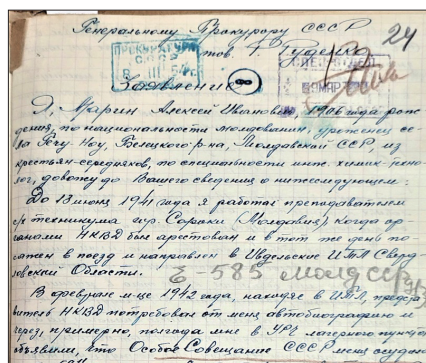 Генеральному Прокурору СССР
24
тов. Руденко
ПРОКУРАТУРА
СССР
8 III
СПЕЦ. ОТДЕЛ
МАР
Заявление
Я, Марин Алексей Иванович, 1906 года рож-
дения, по национальности молдованин, уроженец се-
ла Речу Ноу, Бельцкого р-на, Молдавской ССР, из
крестьян-середняков, по специальности инж. химик-
лог, довожу до Вашего сведения о нижеследующем:
До 13 июня 1941 года я работал преподавателем
с/х техникума гор. Сороки (Молдавия), когда ор-
ганами НКВД был арестован и в тот же день по-
сажен в поезд и направлен в Ивдельские ИТЛ Сверд-
ловской Области.
Е-585 Молд ССР
В феврале м-це 1942 года, находясь в ИТЛ, предста-
витель НКВД потребовал от меня автобиографию и
через, примерно, полгода мне в УРЧ лагерного пункта
объявили, что Особое Совещание СССР меня осудило